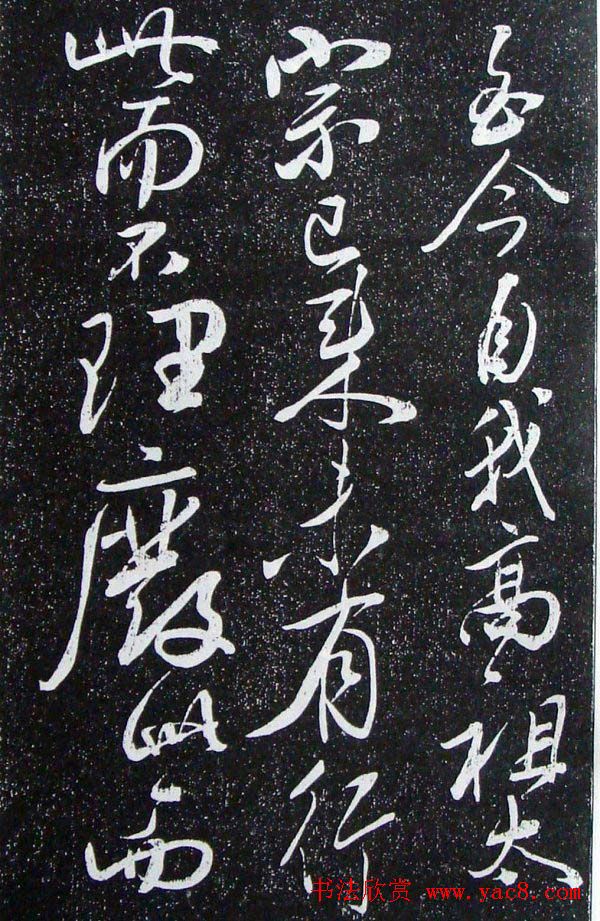 至今自我高祖太
宗已来未有行
此而不理废此而
书法欣赏 www.yac8.com